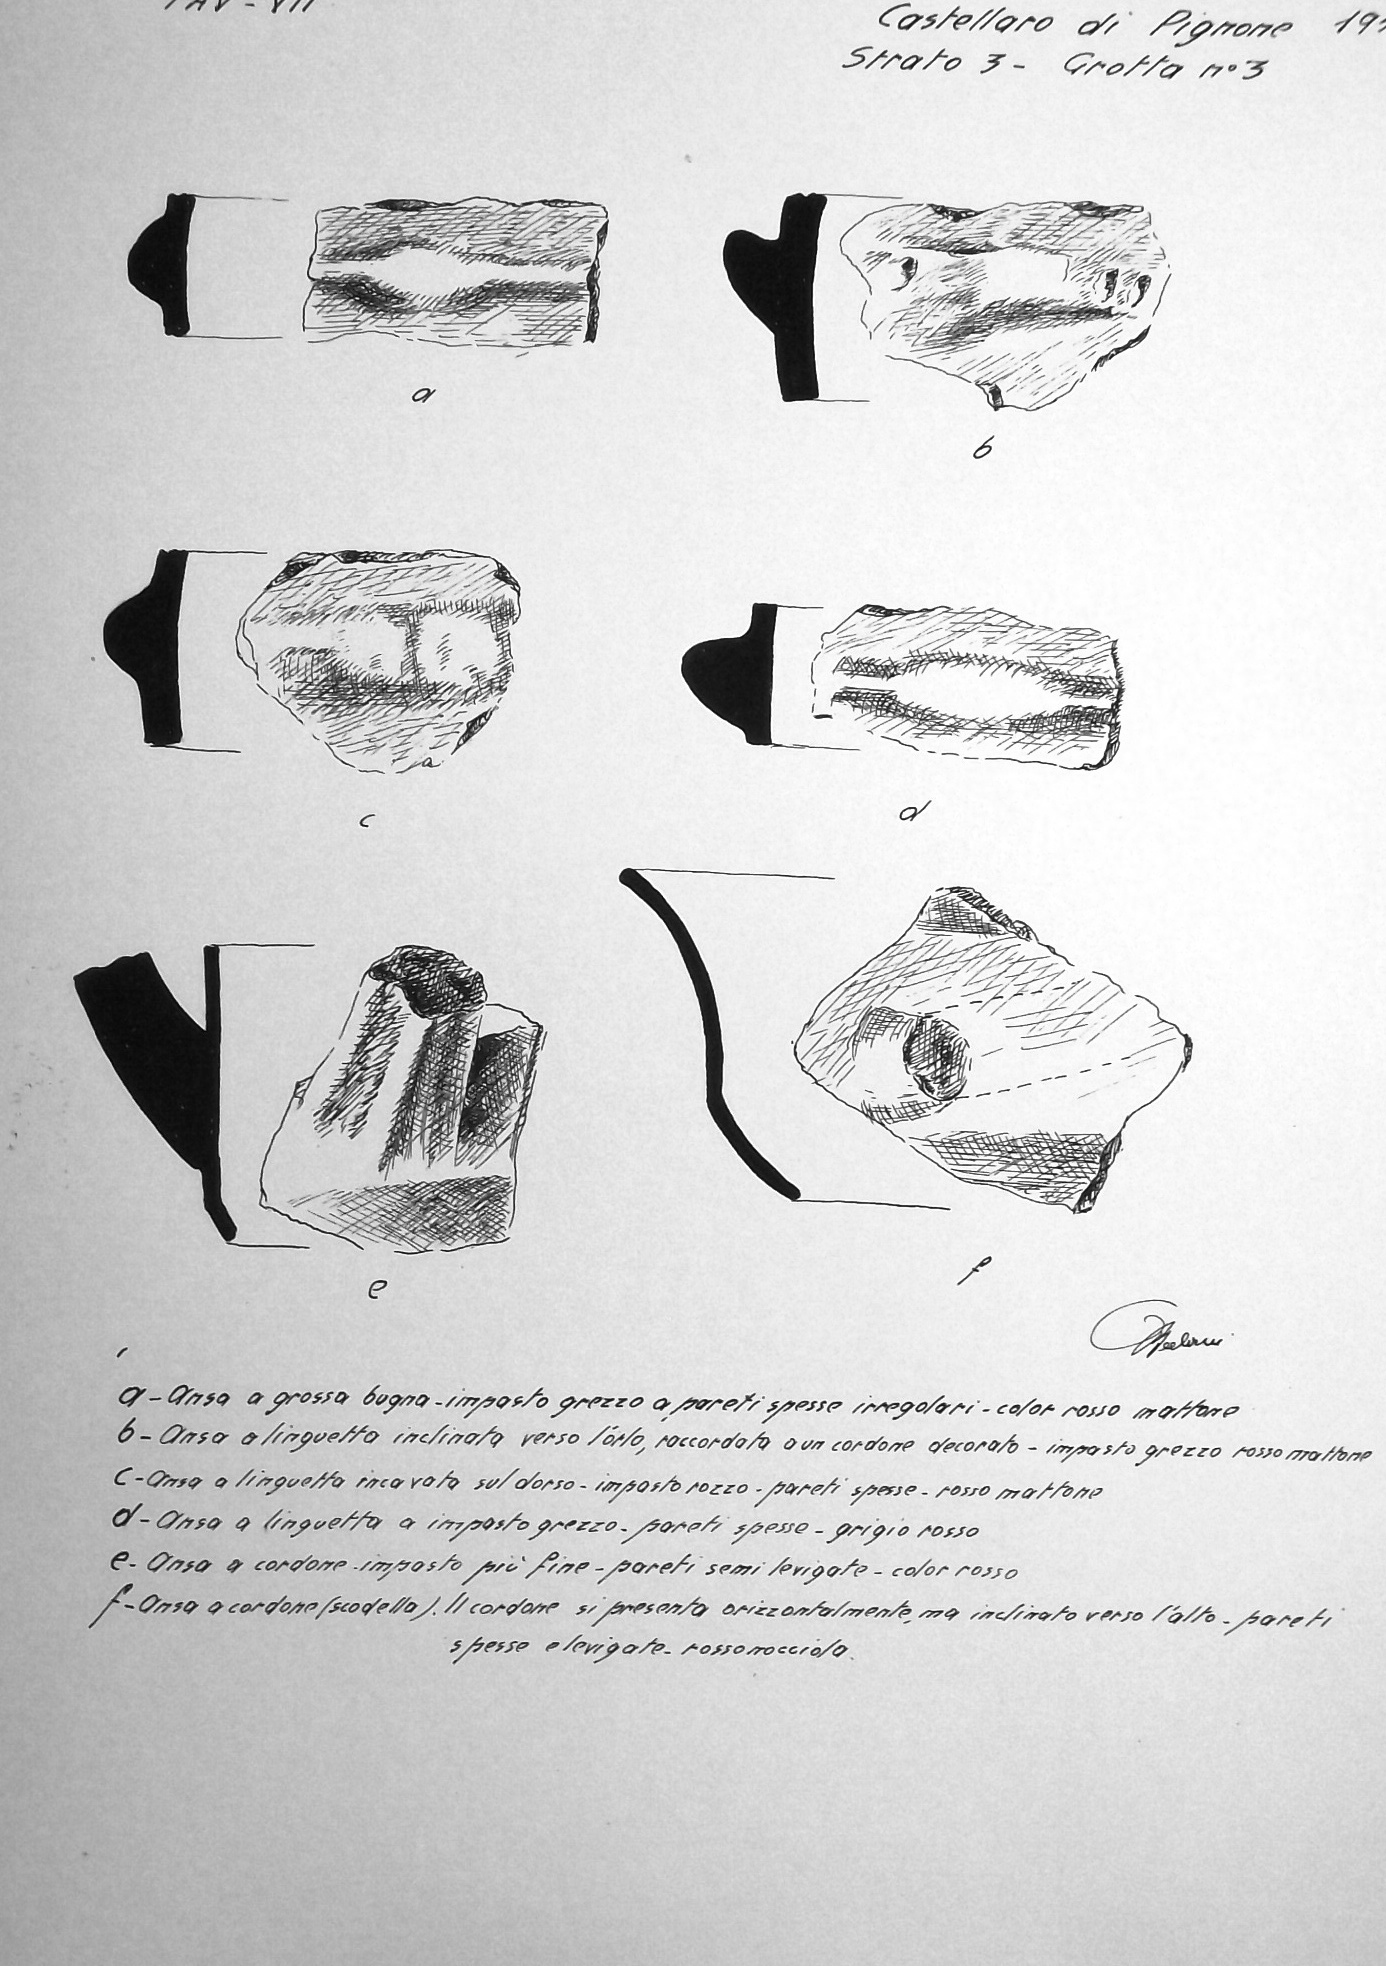 TAV - VII
Castellaro di Pignone
Strato 3 - Grotta n° 3
a
b
c
d
e
f
a - Ansa a grossa bugna - impasto grezzo a pareti spesse irregolari - color rosso mattone
b - Ansa a linguetta inclinata verso l'orlo, raccordata a un cordone decorato - impasto grezzo rosso mattone
c - Ansa a linguetta incavata sul dorso - impasto rozzo - pareti spesse - rosso mattone
d - Ansa a linguetta a impasto grezzo - pareti spesse - grigio rosso
e - Ansa a cordone - impasto più fine - pareti semi levigate - color rosso
f - Ansa a cordone (scodella). Il cordone si presenta orizzontalmente, ma inclinato verso l'alto - pareti
spesse e levigate - rosso nocciola.